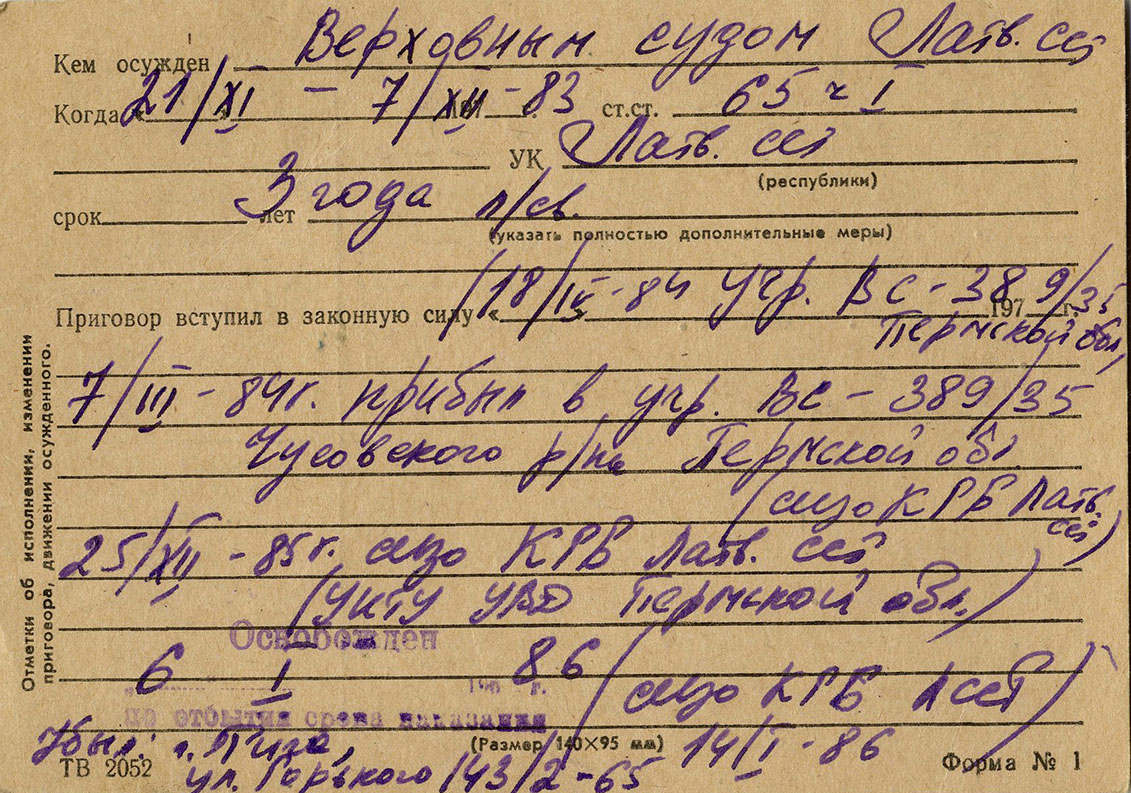 Кем осужден Верховным судом Латв. ССР
Когда «21/XI - 7/XII - 83 ст.ст. 65 ч I
УК Латв. ССР
(республики)
срок 3 года лет л/св.
(указать полностью дополнительные меры)
(18/IV-84 учр. ВС-389/35
Приговор вступил в законную силу «
197 г.
Пермской обл.
7/III - 84г. прибыл в учр. ВС - 389/35
Чусовского р/на Пермской обл.
(сизо КГБ Латв. ССР)
25/XII - 85г. сизо КГБ Латв. ССР
(УИТУ УВД Пермской обл.)
Освобожден
6 I 86 (сизо КГБ ЛССР)
по отбытии срока наказания
Убыл: г. Рига,
(Размер 140×95 мм)
14/I - 86
ТВ 2052
ул. Горького 143/2-65
Форма № 1
Отметки об исполнении, изменении
приговора, движении осужденного.